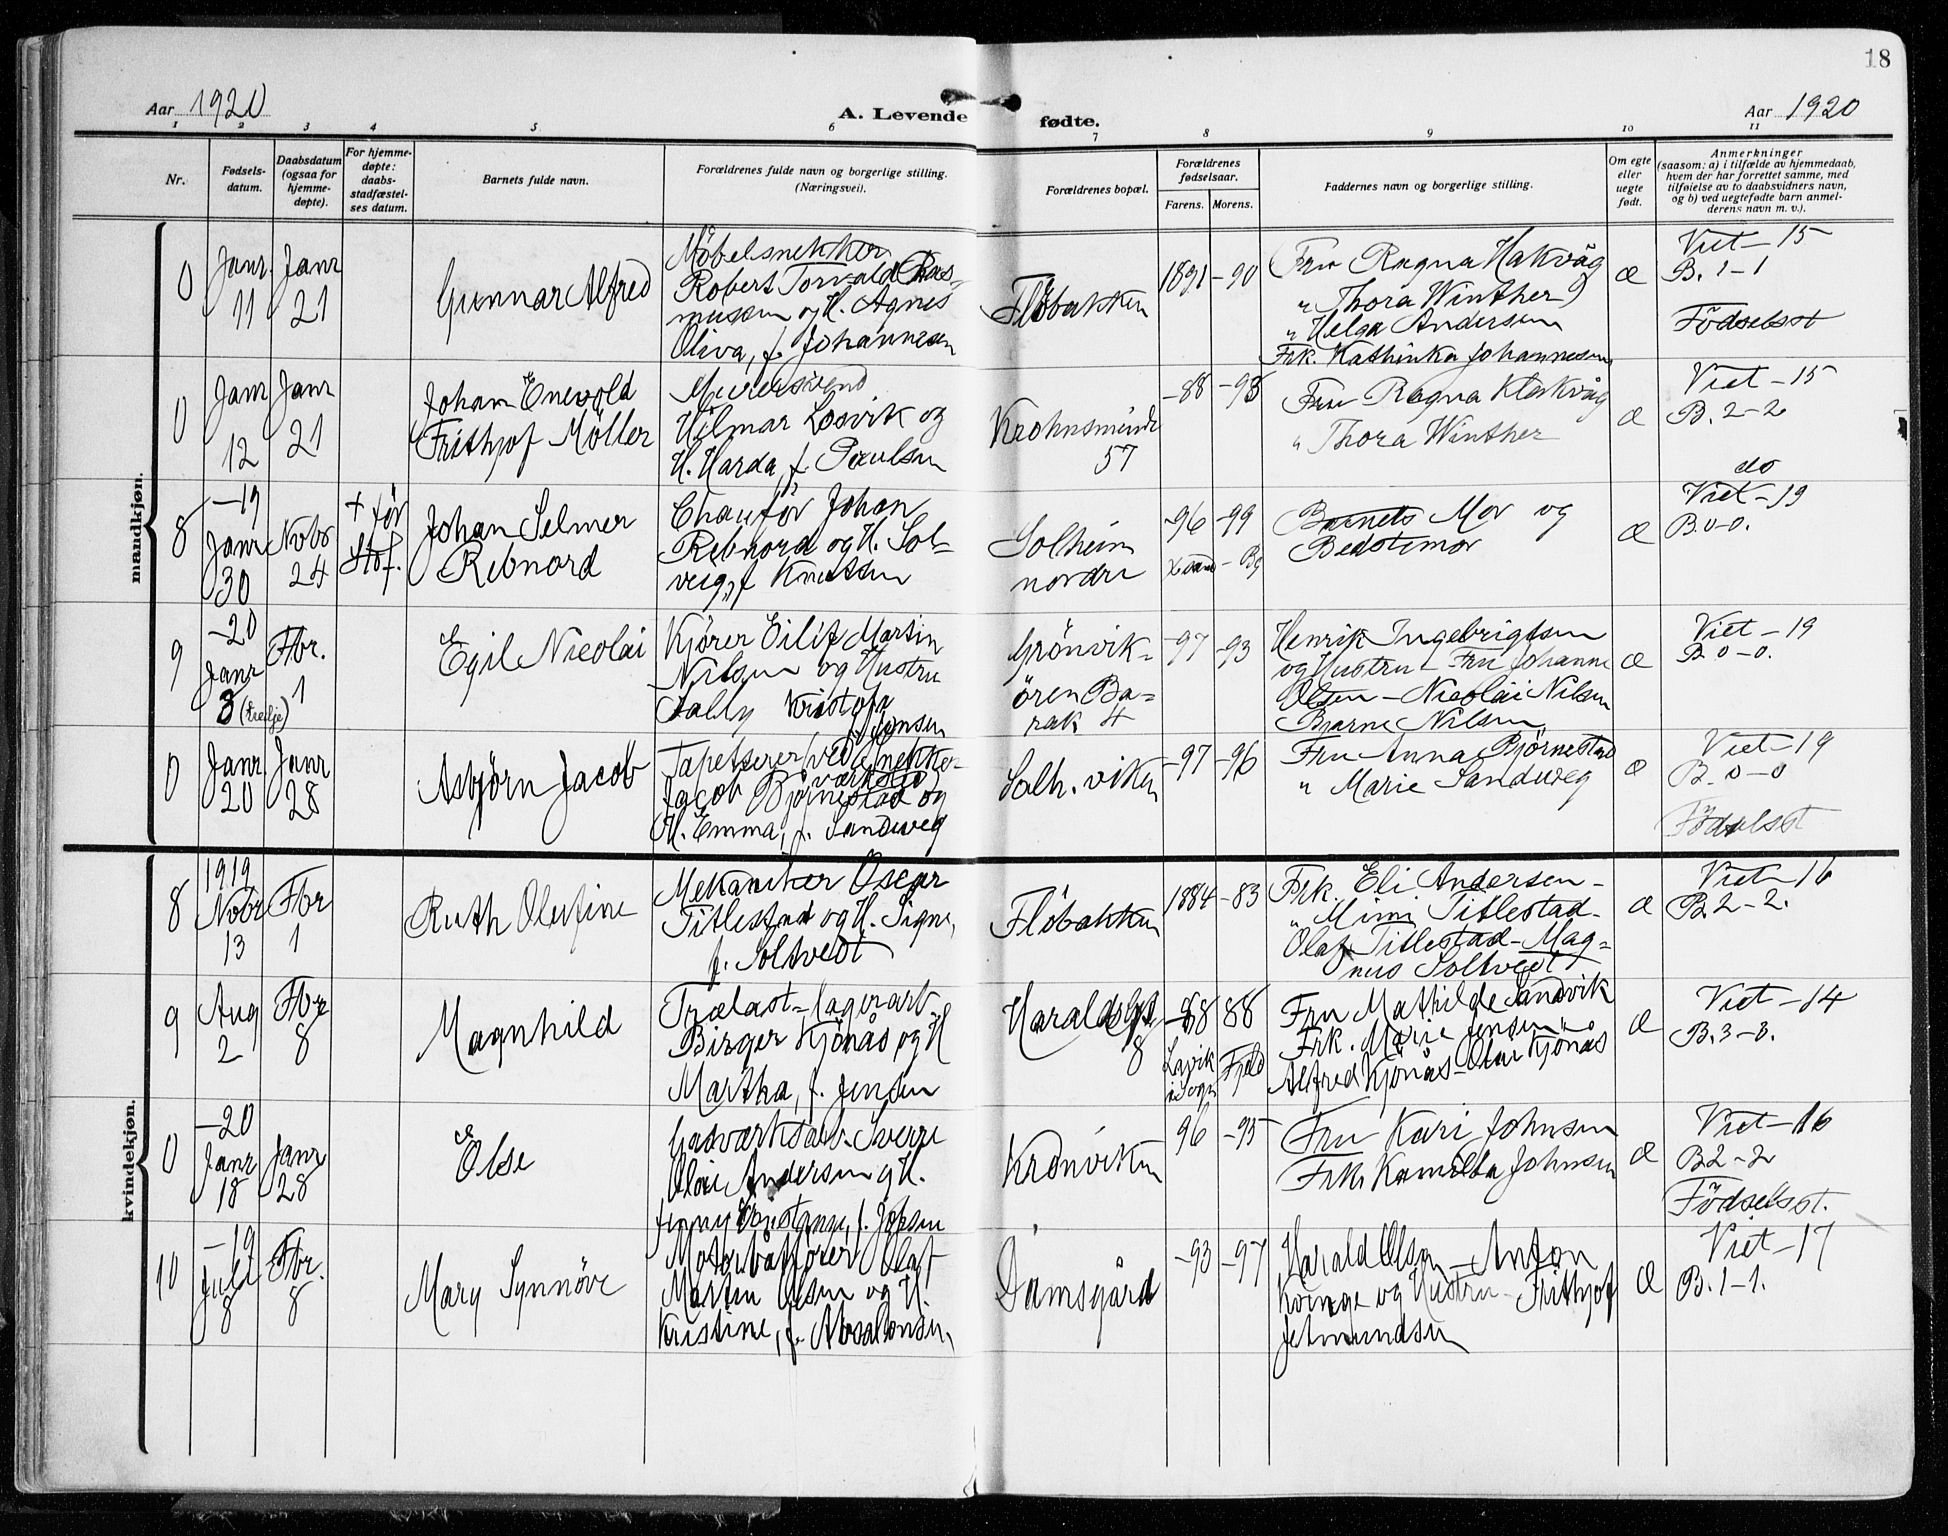 18
Aar 1920
A. Levende fødte.
Aar 1920
1 2 3 4 5 6 7 8 9 10 11
Nr.
Fødsels-
datum.
Daabsdatum
(ogsaa for
hjemme-
døpte).
For hjemme-
døpte:
daabs-
stadfæstel-
ses datum.
Barnets fulde navn.
Forældrenes fulde navn og borgerlige stilling.
(Næringsvei).
Forældrenes bopæl.
Forældrenes
fødselsaar.
Farens. Morens.
Faddernes navn og borgerlige stilling.
Om egte
eller
uegte
født.
Anmerkninger
(saasom: a) i tilfælde av hjemmedaab,
hvem der har forrettet samme, med
tilføielse av to daabsvidners navn,
og b) ved uegtefødte barn anmel-
derens navn m. v.).
mandkjøn.
0
Janr
11
Janr
21
Gunnar Alfred
Möbelsnekker
Robert Torvald Ras-
mussen og H. Agnes
Oliva, f. Johannesen
Flöbakken
1891 -90
Fru Ragna Hakvåg
" Thora Winther
" Helga Andersen
Frk. Kathinka Johannesen
æ
Viet - 15
B. 1-1
Födselsst
0
Janr
12
Janr
21
Johan Enevold
Frithjof Möller
Hilmar Losvik og
H. Harda, f. Paulsen
Krohnsminde
57
-88 -93
Fru Ragna
" Thora Winther
æ
Viet - 15
B. 2-2
do
8
-19
Janr
30
Nobr
24
+ för
Stdf.
Johan Selmer
Rebnord
Chauför Johan
Rebnord og H. Sol-
veig, f Knutsen
Solheim
nordre
-96 -99
Barnets Mor og
Bedstemor
æ
Viet - 19
B. 0-0.
9
-20
Janr
3 (tredje)
Fbr.
1
Egil Nicolai
Kjörer Eilif Martin
Nilsen og Hustru
Sally Kristofa
f. Jensen
Grönvik-
ören Ba-
rak 4
-97 -93
Henrik Ingebrigtsen
og Hustru - Fru Johanne
Olsen - Nicolai Nilsen
Bjarne Nilsen
æ
Viet - 19
B. 0-0.
0
Janr
20
Janr
28
Asbjørn Jacob
Tapetserer (ved Snekker-
værksted)
Jacob Bjørnestad og
H. Emma, f. Sandweg
Solh. viken
-97 -96
Fru Anna Bjørnestad
" Marie Sandweg
æ
Viet - 19
B. 0-0
Födselsst
kvindekjøn.
8
1919
Nobr
13
Fbr
1
Ruth Olufine
Mekaniker Oscar
Titlestad og H. Signe,
f. Soltvedt
Flöbakken
1884 -83
Frk. Eli Andersen -
" Mimi Titlestad -
Olaf Titlestad - Mag-
nus Soltvedt
æ
Viet - 16
B. 2-2.
9
Aug
2
Fbr
8
Magnhild
Trælast-lagerarb.
Birger Kjönås og H
Martha, f. Jensen
Haraldsgt
8
-88 88
Fru Mathilde Sandvik
Frk. Marie Jensen
Alfred Kjönås - Olav Kjönås
æ
Viet - 14
B. 3-3.
0
-20
Janr
18
Janr
28
Else
Gasværksarb. Sverre
Olai Andersen og H.
Jenny Constanse, f. Johnsen
Kronviken
96 -95
Fru Kari Johnsen
Frk. Kamilla Johnsen
æ
Viet - 16
B 2-2
Födselsst.
10
-19
Juli
8
Fbr.
8
Mary Synnöve
Motorbåtförer Olaf
Martin Olsen og H.
Kristine, f. Absalonsen
Damsgård
-93 -97
Harald Olsen - Anton
Kvinge og Hustru - Frithjof
Jetmundsen
æ
Viet - 17
B. 1-1.